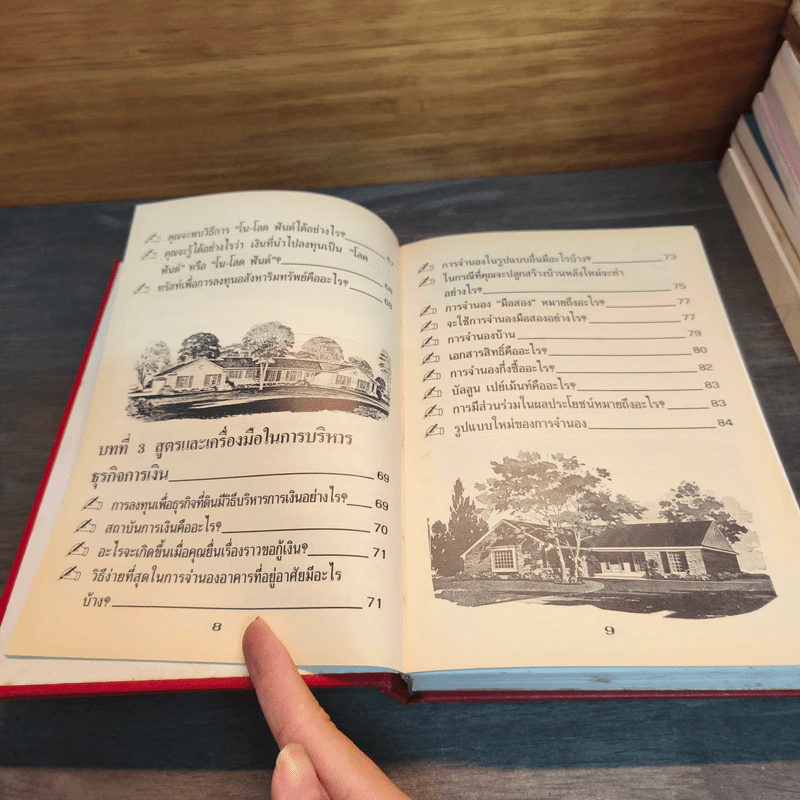 คุณจะพบวิธีการ "โน-โลด ฟันด์ได้อย่างไร? 67
คุณจะรู้ได้อย่างไรว่า เงินที่นำไปลงทุนเป็น "โลด
ฟันด์" หรือ "โน-โลด ฟันด์"? 68
ทรัสท์เพื่อการลงทุนอสังหาริมทรัพย์คืออะไร? 68
บทที่ 3 สูตรและเครื่องมือในการบริหาร
ธุรกิจการเงิน 69
การลงทุนเพื่อธุรกิจที่ดินมีวิธีบริหารการเงินอย่างไร? 69
สถาบันการเงินคืออะไร? 70
อะไรจะเกิดขึ้นเมื่อคุณยื่นเรื่องราวขอกู้เงิน? 71
วิธีง่ายที่สุดในการจำนองอาคารที่อยู่อาศัยมีอะไร
บ้าง? 71
8
การจำนองในรูปแบบอื่นมีอะไรบ้าง? 73
ในกรณีที่คุณจะปลูกสร้างบ้านหลังใหม่จะทำ
อย่างไร? 75
การจำนอง "มือสอง" หมายถึงอะไร? 77
จะใช้การจำนองมือสองอย่างไร? 77
การจำนองบ้าน 79
เอกสารสิทธิ์คืออะไร? 80
การจำนองกึ่งซื้ออะไร? 82
บัลลูน เปย์เม้นท์คืออะไร? 83
การมีส่วนร่วมในผลประโยชน์หมายถึงอะไร? 83
รูปแบบใหม่ของการจำนอง 84
9